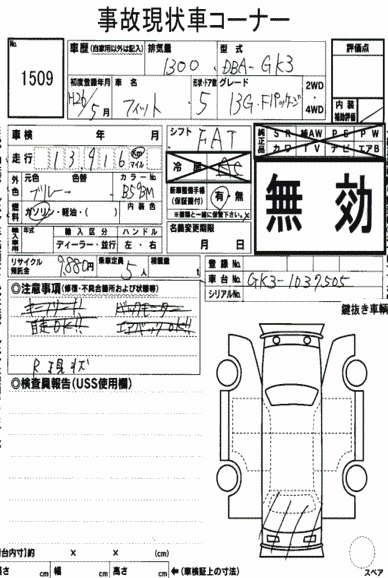 事故現状車コーナー
No. 1509
車歴 (自家用以外は記入) 排気量 1300 型式 DBA-GK3
評価点
初度登録年月 H26/5月 車名 フィット 形状・ドア数 5 グレード 13G.Fパッケージ 2WD・4WD
内装 補助評価
車検 年 月
シフト FAT
純正品 SR 革AW PS PW
カワ TV ナビ エアB
走行 13,916 Km マイル
冷房 AC
外装色 元色 ブルー 色替 カラーNo. B593M
新車整備手帳(保証書付) 有・無
※書類と一緒に保管下さい
無効
燃料 ガソリン・軽油・( ) 内装色
輸入車用 年式 輸入区分 ハンドル
ディーラー・並行 左・右
名義変更期限
月 日
リサイクル預託金 9,880円 定員 5人 積載量 t
登録No.
車台No. GK3-1037505
シリアルNo.
◎注意事項 (修復・不具合箇所および状態等)
鍵抜き車輌
自走OK!! エアバックOK!!
R現状
◎検査員報告 (USS使用欄)
台内寸) 約 × × (cm)
長さ cm 幅 cm 高さ cm ←(車検証上の寸法)
スペア